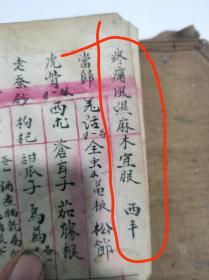 疼痛風濕麻木宜服 西丰
當歸 羌活 全虫 龟板 松節
虎骨 西芃 蒼耳子 茄根
老蚕砂 枸杞 甜瓜子